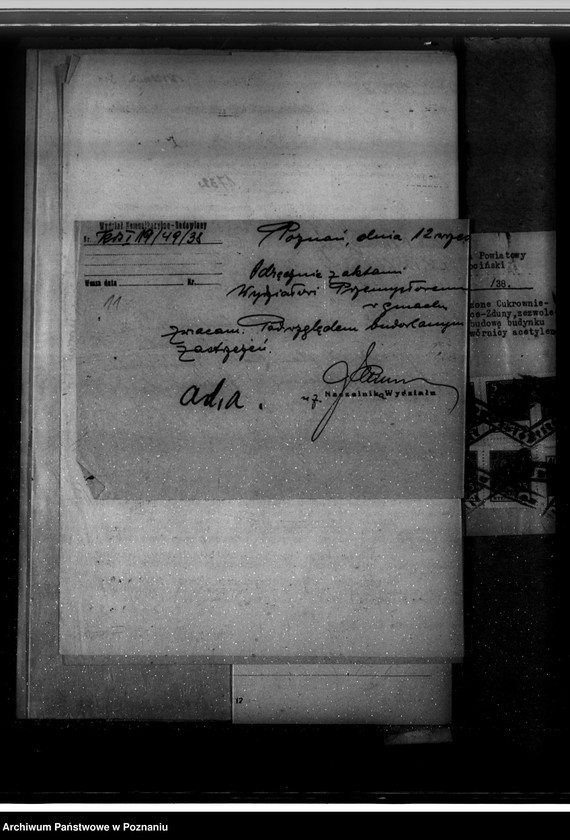 Wydział Komunikacyjno-Budowlany
Nr. I 19/49/38
Poznań, dnia 12
Wasza data Nr.
Odręcznie z aktami
Wydziałowi Przemysłowemu
w gmachu
11
zwracam. Pod względem budowlanym
zastrzeżeń.
ad.a.
Naczelnik Wydziału
Powiatowy
/38.
Cukrownie-
Zduny, zezwole
budowę budynku
acetylen
12
Archiwum Państwowe w Poznaniu